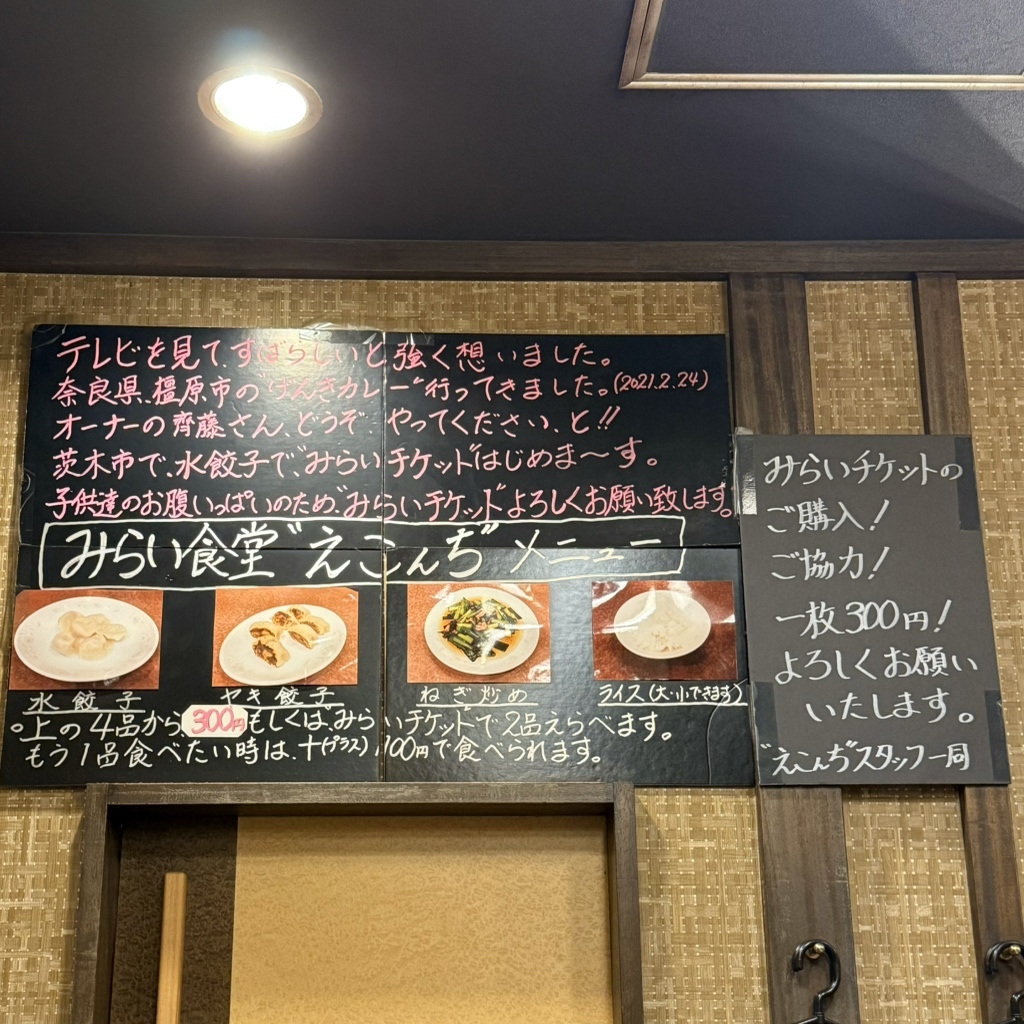 テレビを見て、すばらしいと強く想いました。
奈良県、橿原市の"げんきカレー"行ってきました。(2021.2.24)
オーナーの齊藤さん、どうぞ やってください、と!!
茨木市で、水餃子で、"みらいチケット"はじめま〜す。
子供達のお腹いっぱいのため、"みらいチケット"よろしくお願い致します。
みらい食堂"えこんぢ"メニュー
水餃子
ヤキ餃子
ねぎ炒め
ライス(大・小できます)
○上の4品から、300円もしくは、みらいチケットで2品えらべます。
もう1品食べたい時は、十(プラス)100円で食べられます。
みらいチケットの
ご購入!
ご協力!
一枚300円!
よろしくお願い
いたします。
"えこんぢ"スタッフ一同